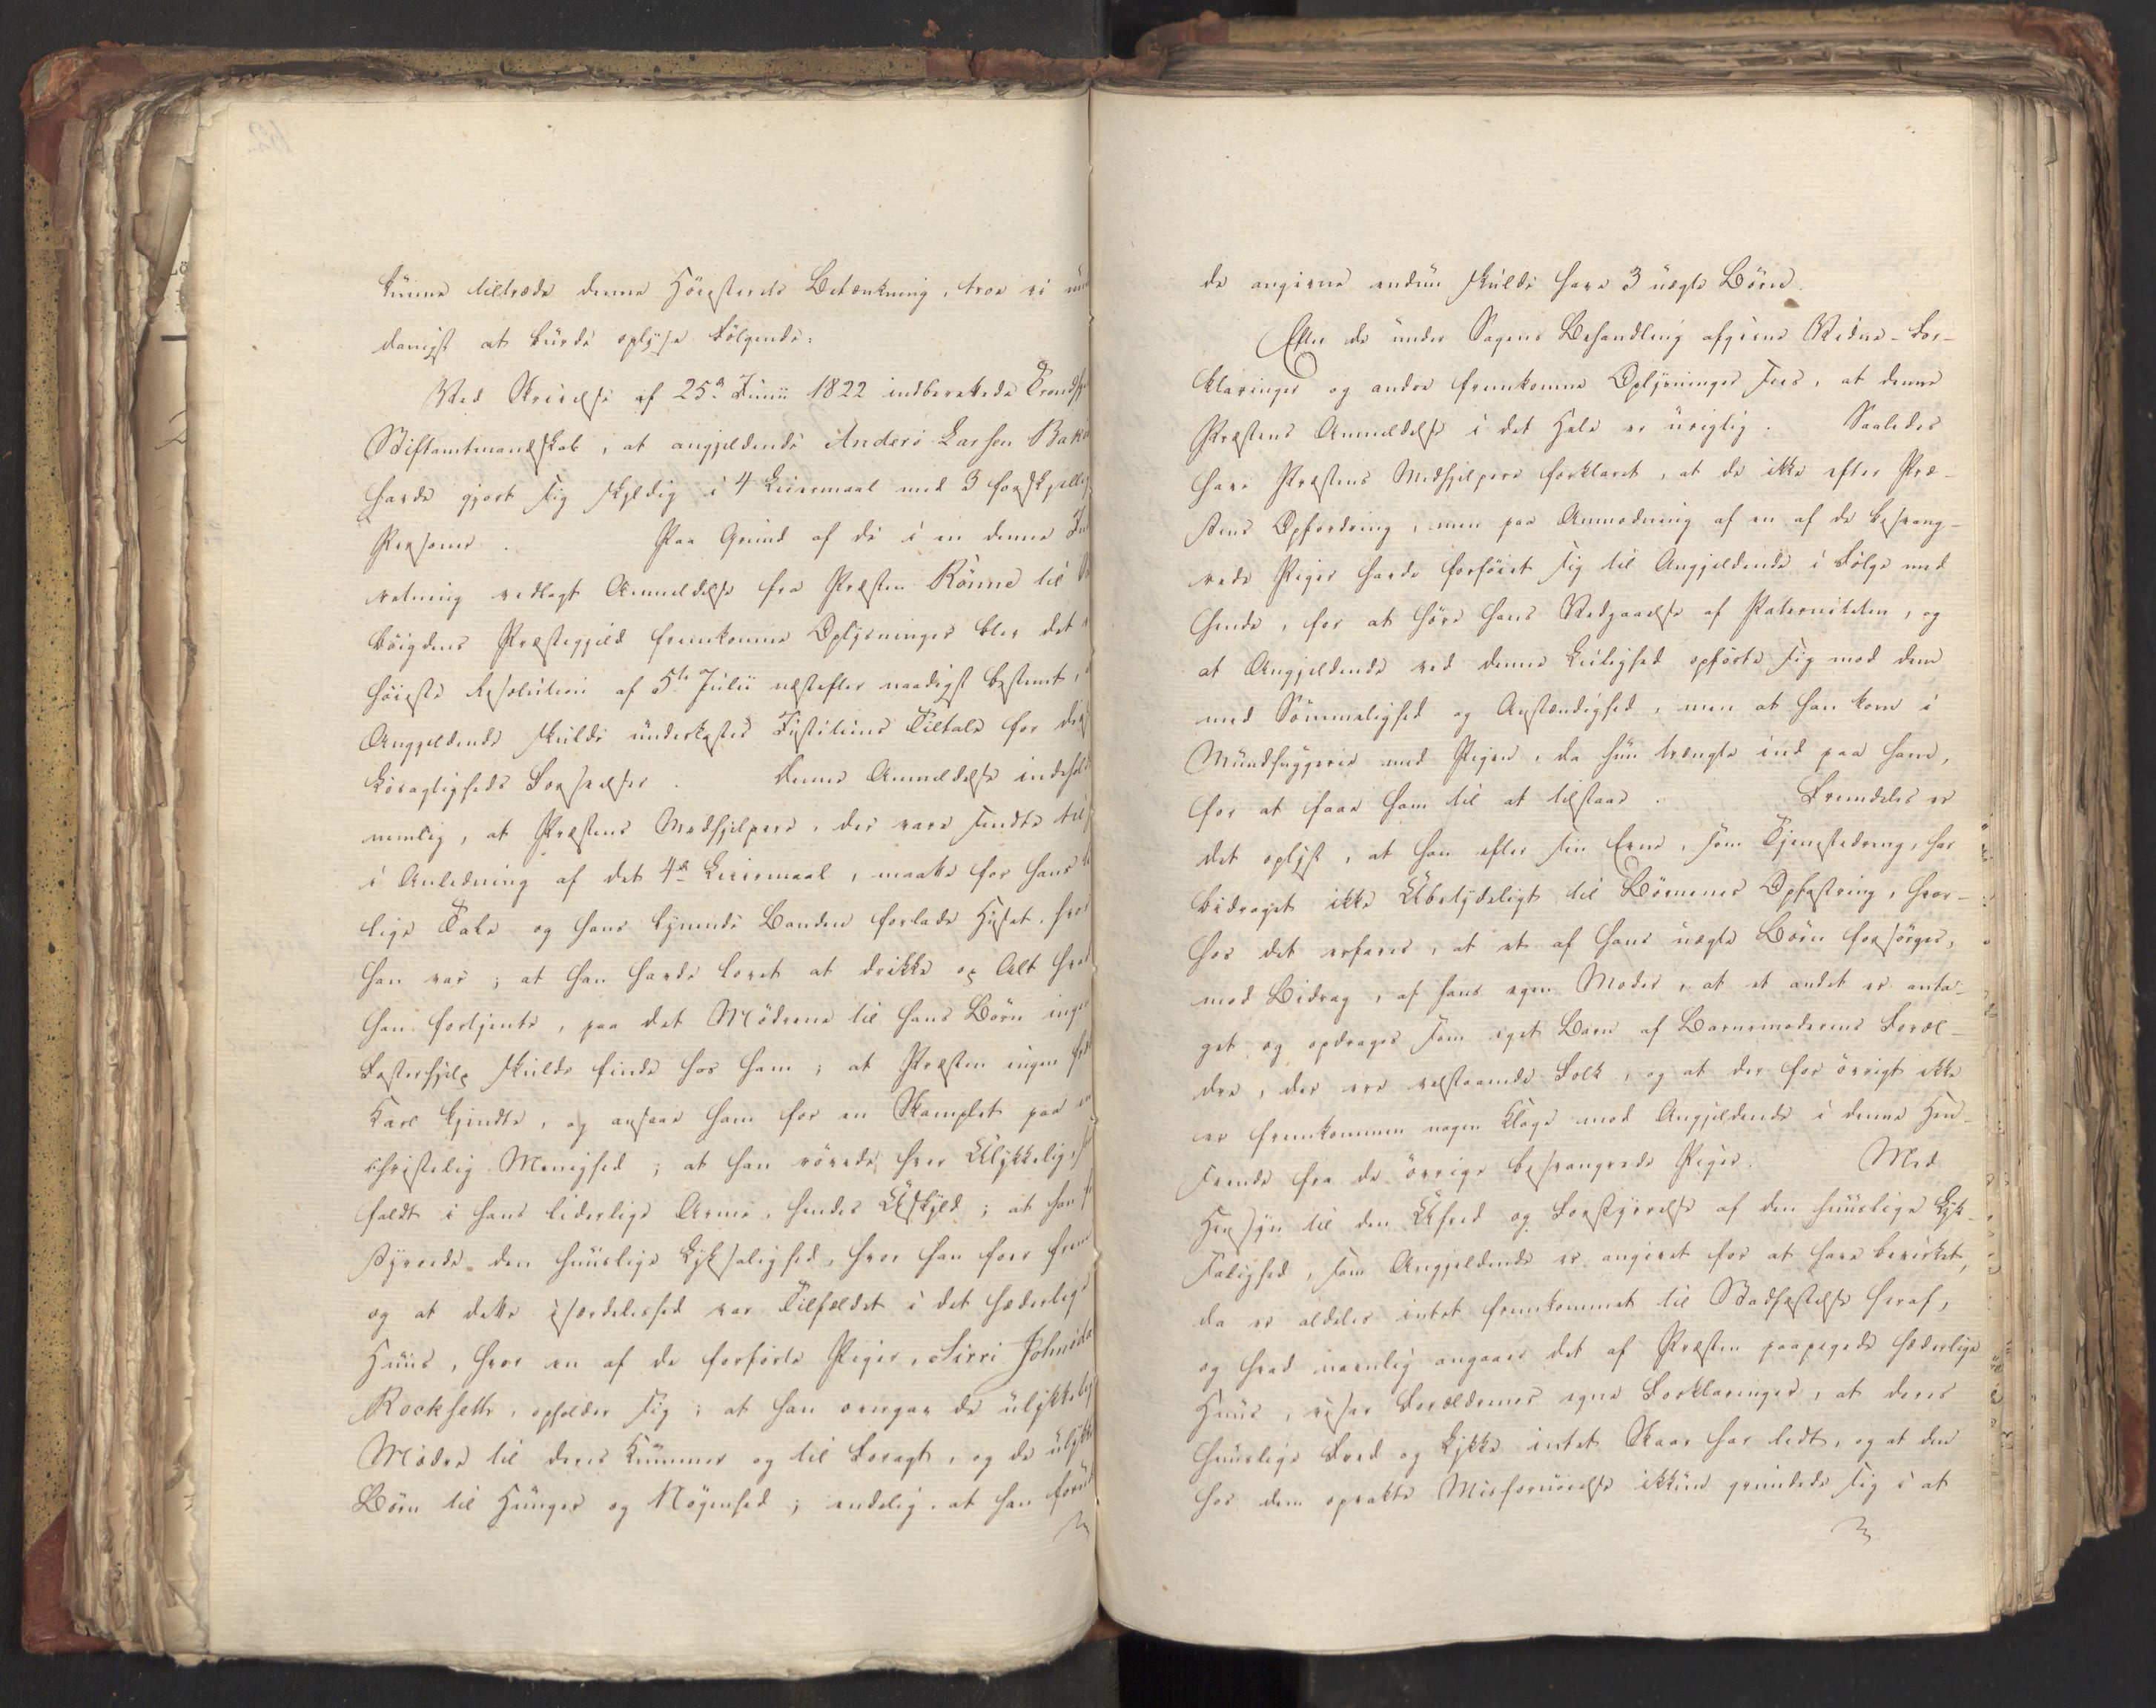 kunne tiltræde denne Høiesterets Betænkning, troe vi un
danigst at burde oplyse Følgende:
Ved Skrivelse af 25de Junii 1822 indberettede Trondhj
Stiftamtmandskab, at angjeldende Anders Larsen Bak
havde gjort sig skyldig i 4 Leiermaal med 3 forskjellig
Personer. Paa Grund af de i en denne Ind
retning vedlagt Anmeldelse fra Præsten Rönne til
bøigdens Præstegjeld fremkomne Oplysninger blev det
høieste Resolution af 5te Julii næstefter naadigst bestemt,
Angjeldende skulde underkastes Justitiens Tiltale for disse
Løsagtigheds Forseelser. Denne Anmeldelse indeholdt
nemlig, at Præstens Medhjelpere, der vare sendte til
i Anledning af det 4de Leiermaal, maatte for hans
lige Tale og hans lynende Banden forlade Huset, hvor
han var; at han havde lovet at drikke op Alt hvad
han fortjente, paa det Mødrene til hans Børn ingen
Fosterhjelp skulde finde hos ham; at Præsten ingen
Karl kjendte, og ansaae ham for en Skamplet paa en
christelig Menighed; at han røvede hver Ulykkelig,
faldt i hans liderlige Arme, hendes Uskyld; at han for
styrrede den huuslige Lyksalighed, hvor han foer frem
og at dette isærdeleshed var Tilfældet i det hæderlige
Huus, hvor en af de forførte Piger, Sirri Johnsda
Rocksett, opholder sig; at han overgav de ulykkelige
Mødre til deres Kummer og til Foragt, og de ulykke
Børn til Hunger og Nøgenhed; endelig, at han foruden
de angivne endnu skulde have 3 uægte Børn.
Efter de under Sagens Behandling afgivne Vidne-For-
klaringer og andre fremkomne Oplysninger sees, at denne
Præstens Anmeldelse i det Hele er urigtig. Saaledes
have Præstens Medhjelpere forklaret, at de ikke efter Præ-
stens Opfordring, men paa Anmodning af en af de besvang-
rede Piger havde forføiet sig til Angjeldende i Følge med
hende, for at høre hans Vedgaaelse af Paterniteten, og
at Angjeldende ved denne Leilighed opførte sig mod dem
med Sømmelighed og Anstændighed, men at han kom i
Mundhuggerie med Pigen, da hun trængte ind paa ham,
for at faae ham til at tilstaae. Fremdeles er
det oplyst, at han efter sin Evne, som Tjenestedreng, har
bidraget ikke Ubetydeligt til Børnenes Opfostring, hvor-
hos det erfares, at et af hans uægte Børn forsørges,
mod Bidrag, af hans egen Moder, at et andet er anta-
get og opdrages som eget Barn af Barnemoderens Foræl-
dre, der ere velstaaende Folk, og at der for øvrigt ikke
er fremkommen nogen Klage mod Angjeldende i denne Hen-
seende fra de øvrige besvangrede Piger. Med
Hensyn til den Ufred og Forstyrrelse af den huuslige Lyk-
salighed, som Angjeldende er angivet for at have bevirket,
da er aldeles intet fremkommet til Stadfæstelse heraf,
og hvad navnlig angaaer det af Præsten paapegede hæderlige
Huus, viser Forældrenes egne Forklaringer, at deres
huuslige Fred og Lykke intet Skaar har lidt, og at den
hos dem opvakte Misfornøielse ikkun grundede sig i at